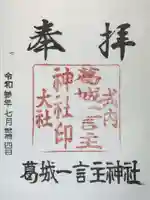 奉拝
式内
大社
葛城一言主
神社印
葛城一言主神社
令和 年 七月 四日